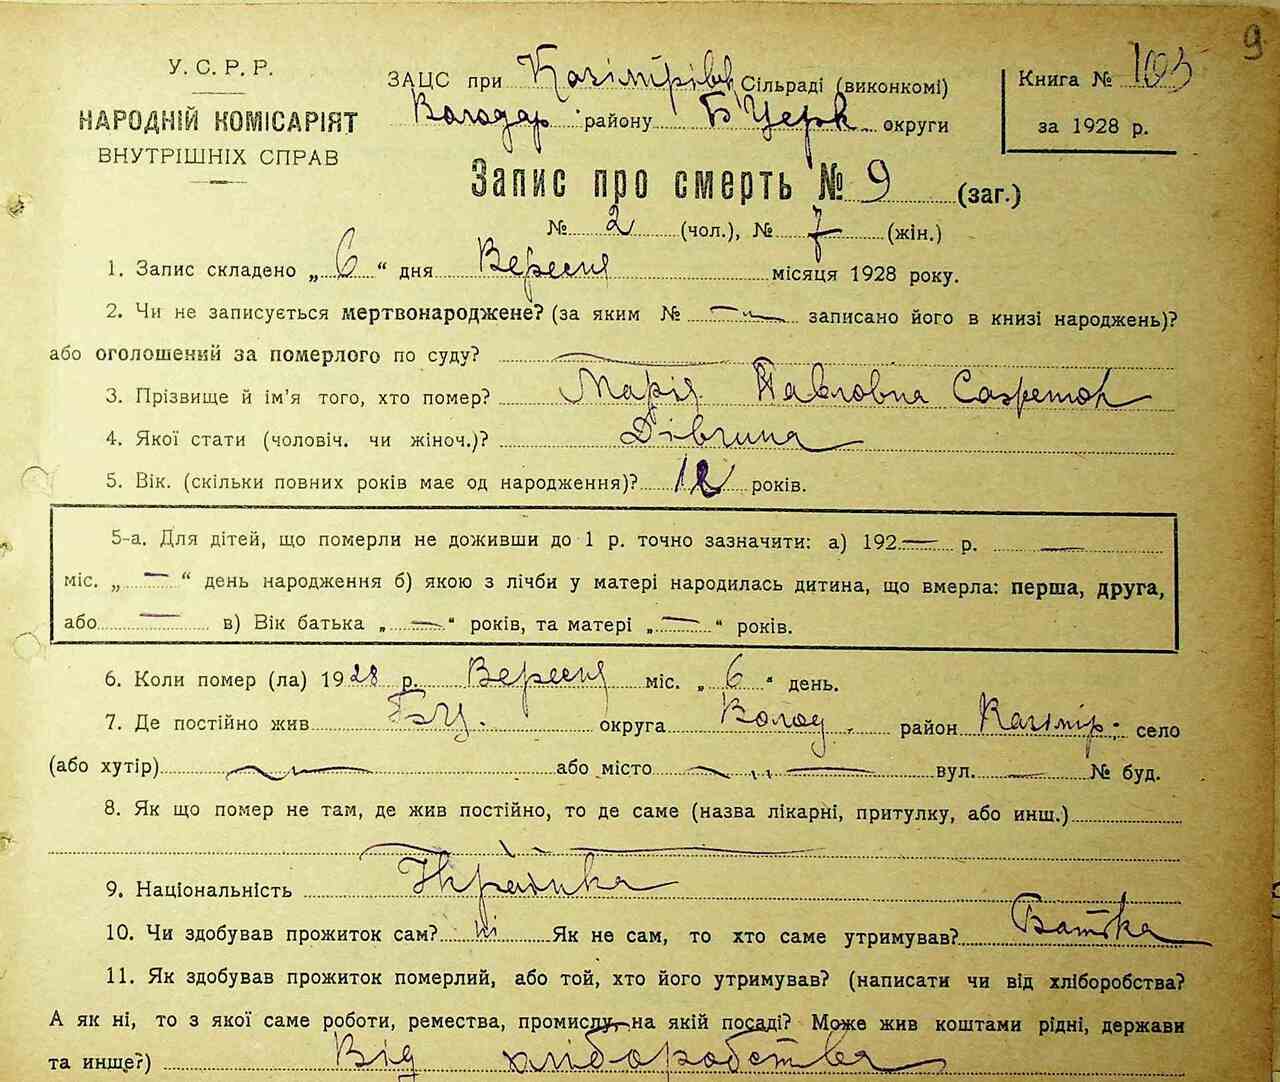 9
У.С.Р.Р.
НАРОДНІЙ КОМІСАРІЯТ
ВНУТРІШНІХ СПРАВ
ЗАЦС при Казімірівк Сільраді (виконкомі)
Володар району Б Церк округи
Книга № 103
за 1928 р.
Запис про смерть № 9 (заг.)
№ 2 (чол.), № 7 (жін.)
1. Запис складено „ 6 “ дня Вересня місяця 1928 року.
2. Чи не записується мертвонароджене? (за яким № — „ — записано його в книзі народжень)?
або оголошений за померлого по суду? —
3. Прізвище й ім'я того, хто помер? Марія Павловна
4. Якої стати (чоловіч. чи жіноч.)? Дівчина
5. Вік. (скільки повних років має од народження)? 12 років.
5-а. Для дітей, що померли не доживши до 1 р. точно зазначити: а) 192 — р. —
міс. „ — “ день народження б) якою з лічби у матері народилась дитина, що вмерла: перша, друга,
або — в) Вік батька „ — “ років, та матері „ — “ років.
6. Коли помер (ла) 1928 р. Вересня міс. „ 6 “ день.
7. Де постійно жив БЦ. округа Волод. район Казімір: село
(або хутір) — „ — або місто — „ — вул. — № буд.
8. Як що помер не там, де жив постійно, то де саме (назва лікарні, притулку, або инш.)
— „ —
9. Національність Українка
10. Чи здобував прожиток сам? ні Як не сам, то хто саме утримував? Батька
11. Як здобував прожиток померлий, або той, хто його утримував? (написати чи від хліборобства?
А як ні, то з якої саме роботи, ремества, промислу, на якій посаді? Може жив коштами рідні, держави
та инше?) Від хліборобства